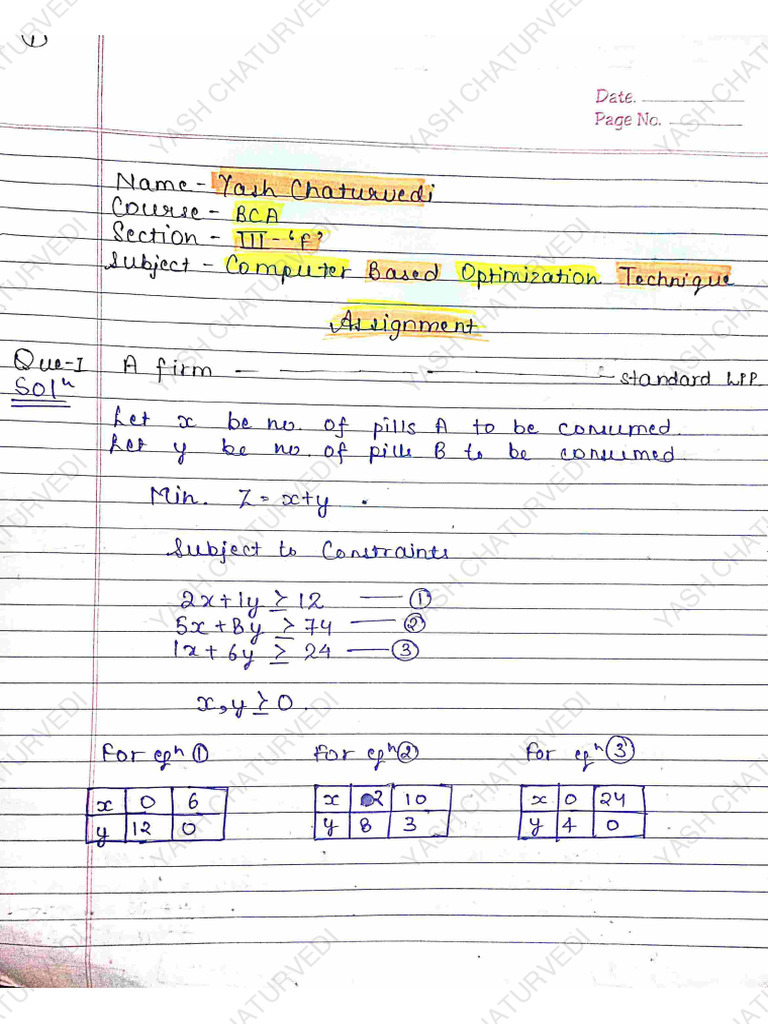 1
Date.
Page No.
Name - Yash Chaturvedi
Course - BCA
Section - III - 'F'
Subject - Computer Based Optimization Technique
Assignment
Que-1 A firm - - - - standard LPP.
Solⁿ
Let x be no. of pills A to be consumed.
Let y be no. of pills B to be consumed
Min. Z = x+y .
Subject to Constraints
2x+1y ≥ 12 — ①
5x+8y ≥ 74 — ②
1x+6y ≥ 24 — ③
x,y ≥ 0.
For eqⁿ ① For eqⁿ ② For eqⁿ ③
x 0 6 x 2 10 x 0 24
y 12 0 y 8 3 y 4 0
YASH CHATURVEDI